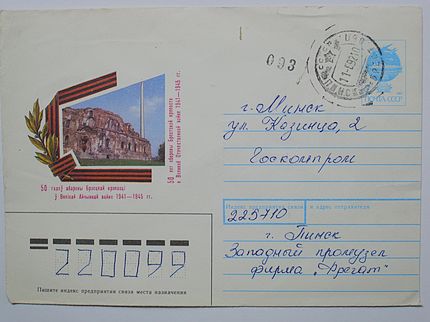 093
ПОЧТА СССР
50 лет обороны Брестской крепости
в Великой Отечественной войне 1941—1945 гг.
50 годаў абароны Брэсцкай крэпасці
ў Вялікай Айчыннай вайне 1941—1945 гг.
г. Минск
ул. Казинца, 2
Госкомпром
Индекс предприятия связи и адрес отправителя
225710
г. Пинск
Западный промузел
фирма "Фрегат"
220099
Пишите индекс предприятия связи места назначения